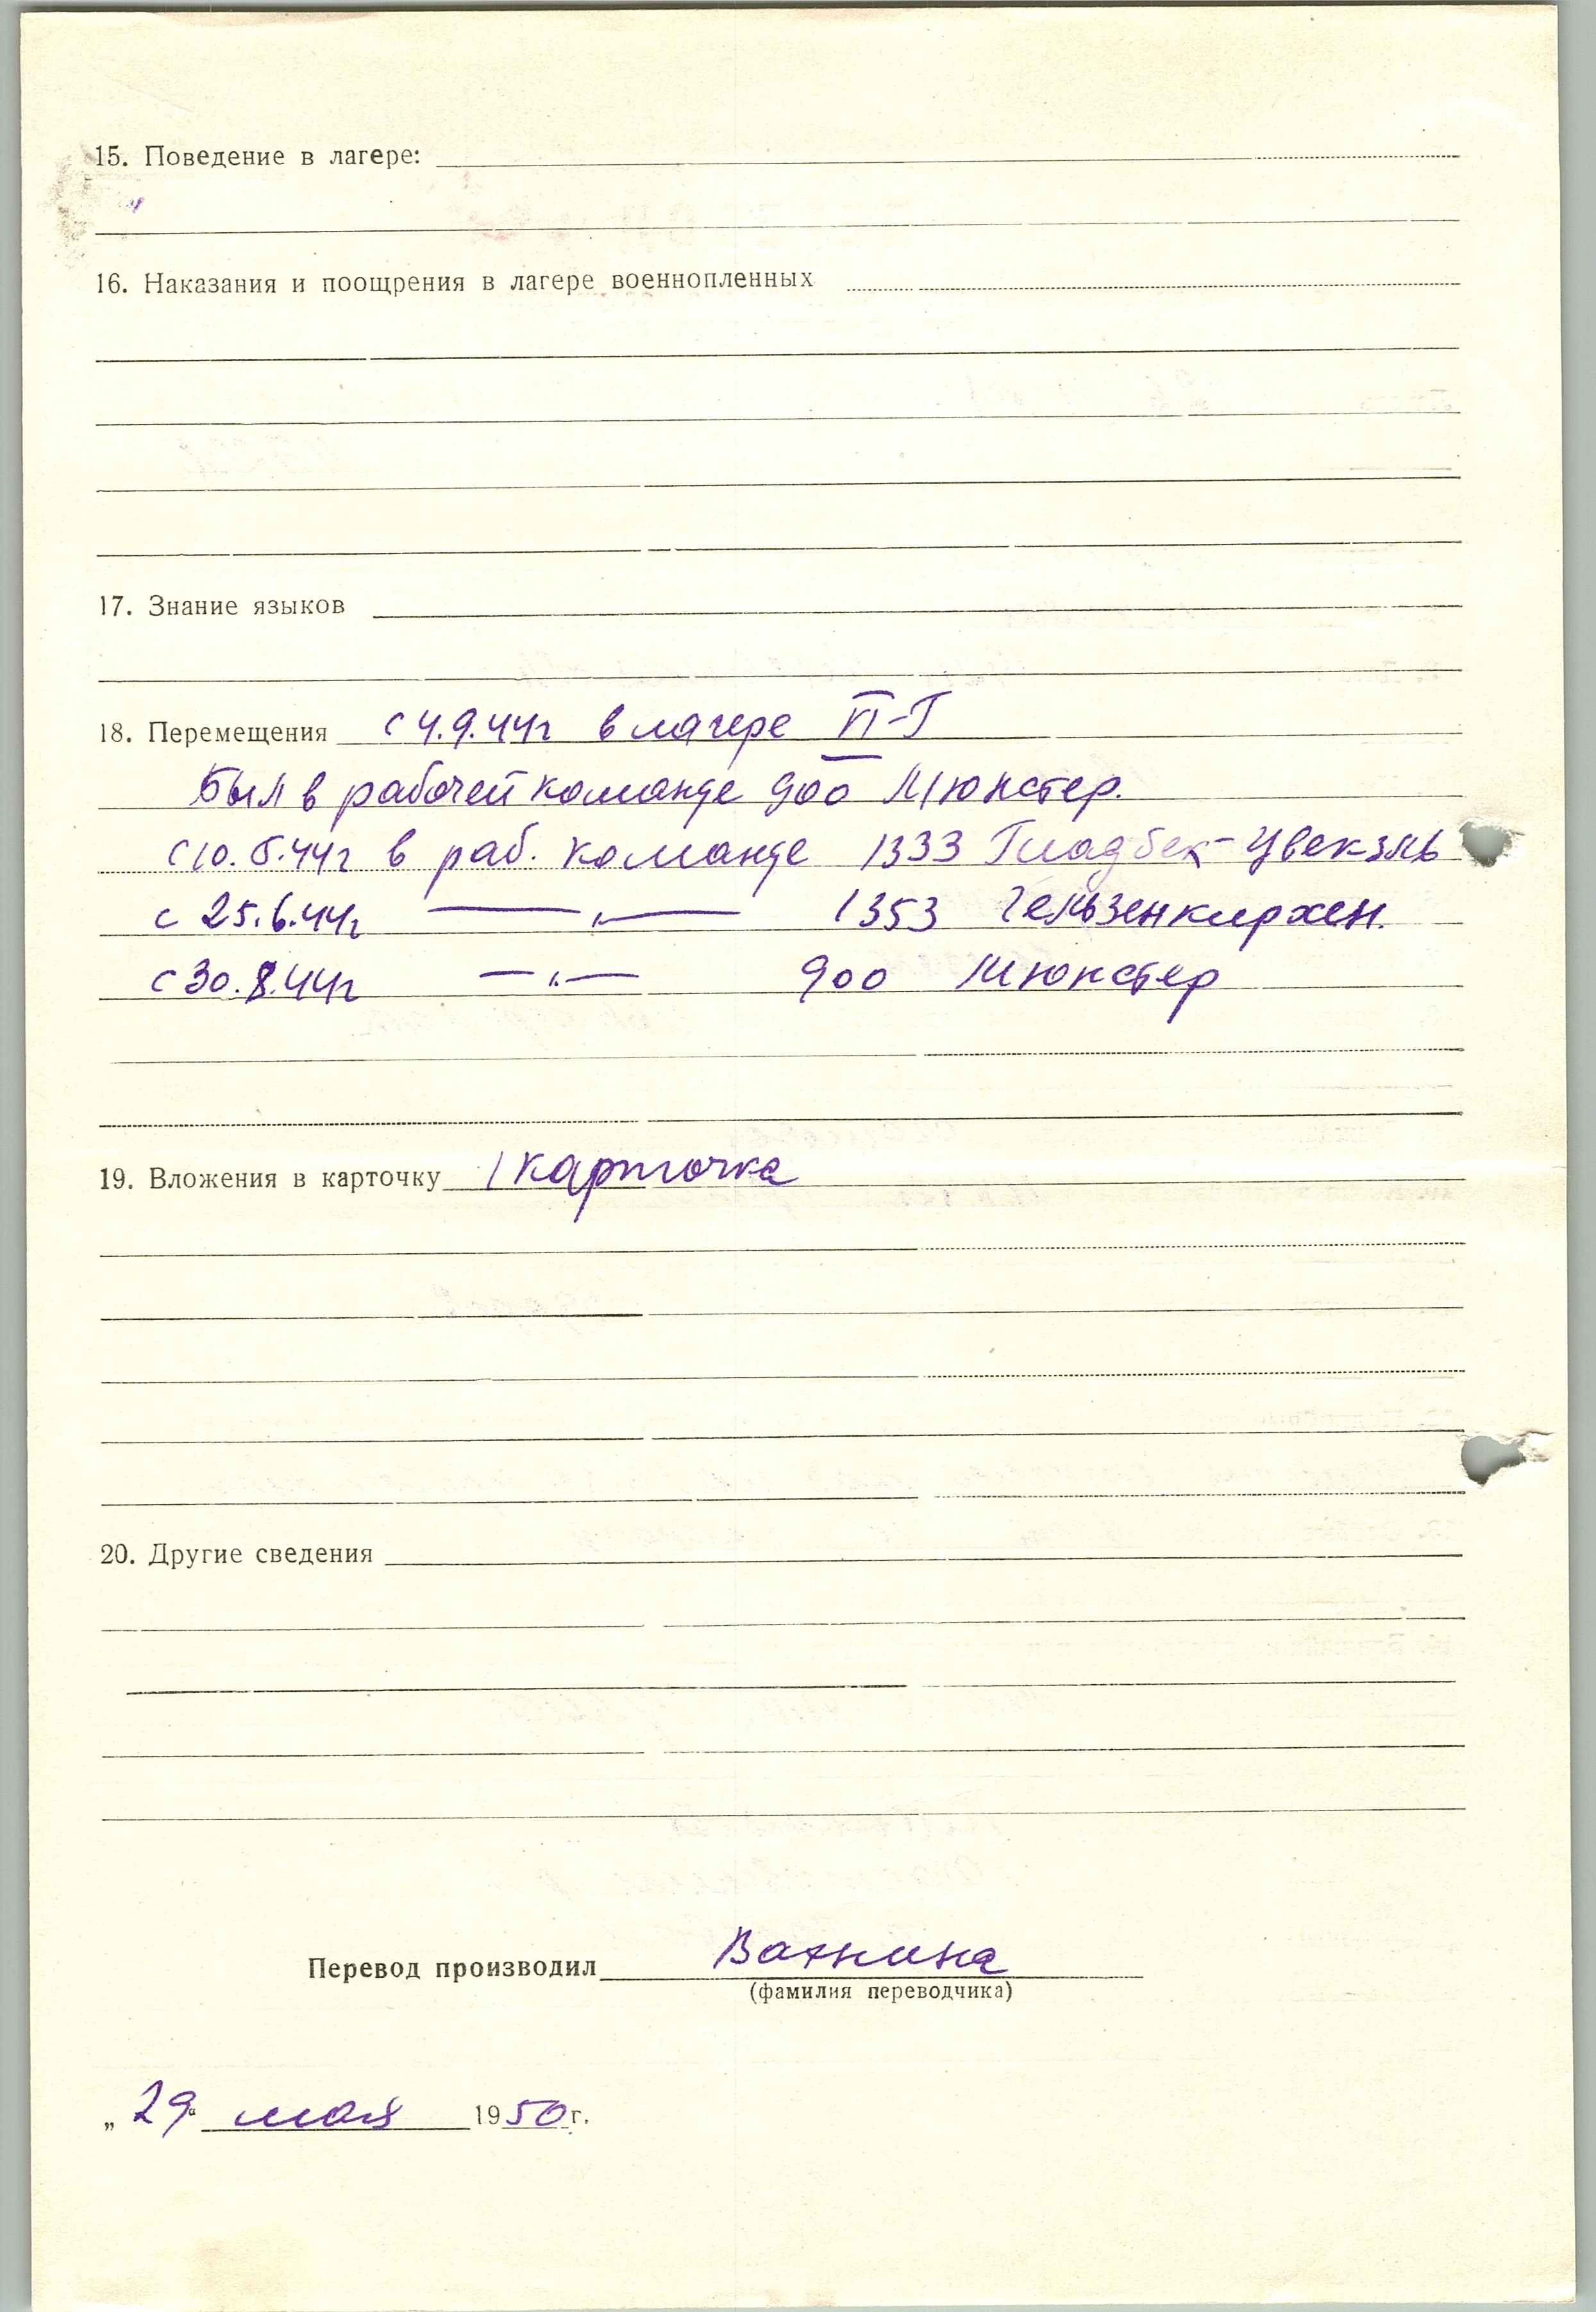 15. Поведение в лагере:
16. Наказания и поощрения в лагере военнопленных
17. Знание языков
18. Перемещения с 4.9.44г в лагере VI-Г
Был в рабочей команде 900 Мюнстер.
с 10.5.44г в раб. команде 1333 Гладбек-Цвекэль
с 25.6.44г —„— 1353 Гельзенкирхен.
с 30.8.44г —„— 900 Мюнстер
19. Вложения в карточку 1 карточка
20. Другие сведения
Перевод производил Вахнина
(фамилия переводчика)
„29“ мая 1950 г.